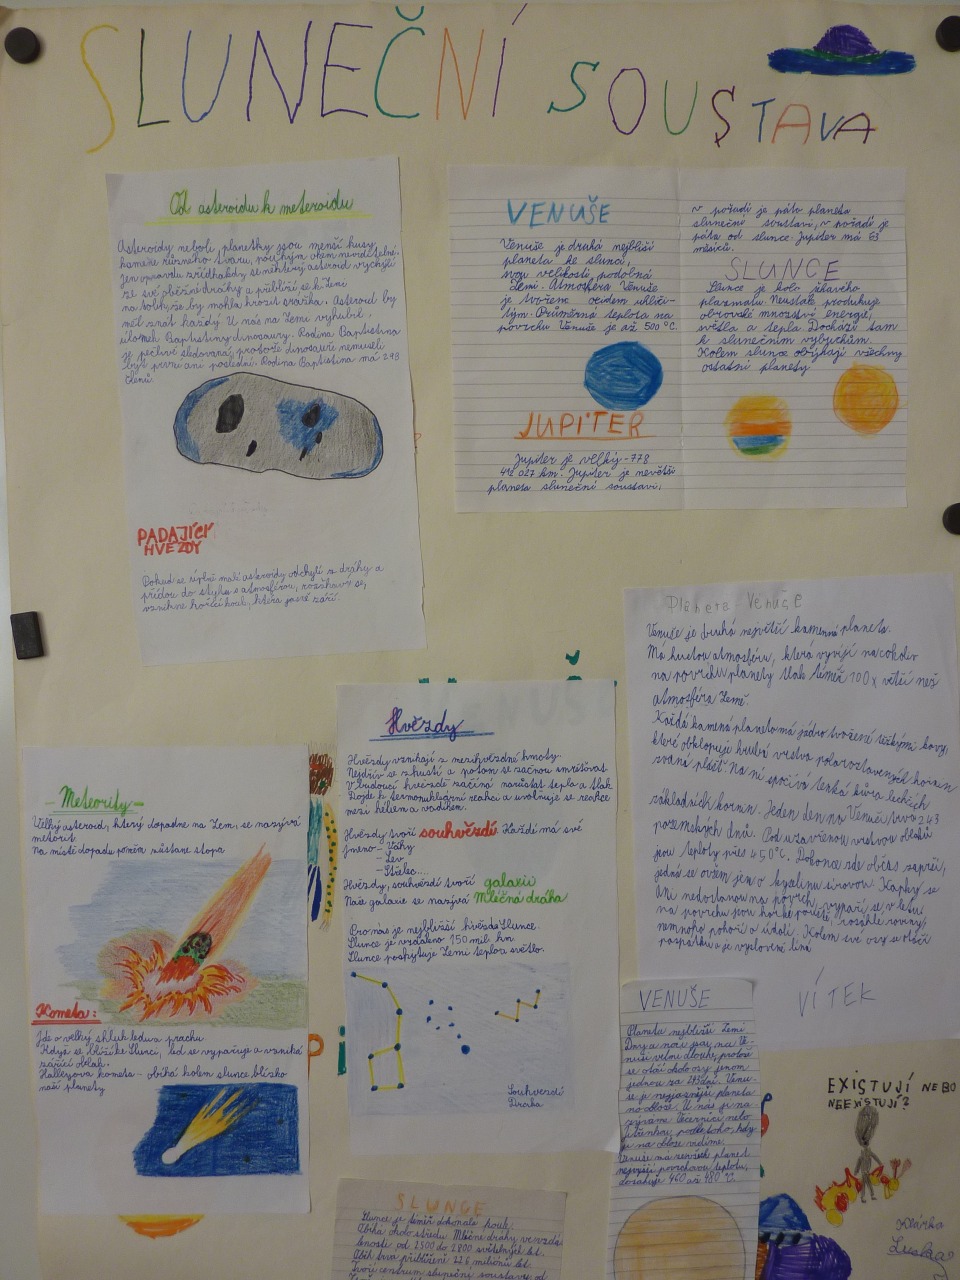 SLUNEČNÍ SOUSTAVA
Od asteroidu k meteoroidu
Asteroidy neboli planetky jsou menší kusy
kamene různého tvaru, pouhým okem neviditelné.
Jen opravdu zřídhakdy se některý asteroid vychýlí
ze své oběžní dráhy a přiblíží se k Zemi
natolik, že by mohla hrozit srážka. Asteroid by
měl znát každý. U nás na Zemi vyhubil
úlomek Baptistiny dinosaury. Rodina Baptistina
je pečlivě sledovaná, protože dinosauři nemuseli
být první ani poslední. Rodina Baptistina má 293
členů.
PADAJÍCÍ
HVĚZDY
Pokud se úplně malí asteroidy odchýlí z dráhy a
přídou do styku s atmosférou,
vznikne hořící kouk, která jasně září.
VENUŠE
Venuše je druhá nejbližší
planeta ke slunci,
svou velikostí podobná
Zemi. Atmosféra Venuše
je tvořena oxidem uhliči-
tým. Průměrná teplota na
povrchu Venuše je až 500 °C.
JUPITER
Jupiter je velký - 778
412 027 km. Jupiter je největší
planeta sluneční soustavi,
v pořadí je páta planeta
sluneční soustavi, v pořadí je
páta od slunce. Jupiter má 63
měsíců.
SLUNCE
Slunce je kolo žhavého
plazmatu. Neustále produkuje
obrovské mnozství energie,
světla a tepla. Dochází tam
k slunečním výbychům.
Kolem slunce obíhají všechny
ostatní planety
Planeta Venuše
Venuše je druhá největší kamenná planeta.
Má hustou atmosféru, která vyvíjí na cokoliv
na povrchu planety tlak téměř 100x větší než
atmosféra Země.
Každá kamená planeta má jádro tvořené těžkými kovy,
které obklopuje hrubá vrstva polaroztavených hornin
zvaná plášť. Na ní spočívá tenká kůra lechčích
základních hornin. Jeden den na Venuši trvá 243
pozemských dnů. Pod uzavřenou vrstvou oblaků
jsou teploty přes 450°C. Dokonce zde občas zaprší,
jedná se ovšem jen o kyselinu sírovou. Kapky se
ani nedostanou na povrch, vypaří se v letu
na povrchu jsou horké pouště, rozsáhlé roviny,
nemnoho pohoří a údolí. Kolem své osy se otáčí
pozpátku
VÍTEK
Hvězdy
Hvězdy vznikají z mezihvězdné hmoty.
Nejdřív se zhustí a potom se začnou smršťovat
V budoucí hvězdě začíná narůstat teplo a tlak
Dojde k termonukleární reakci a uvolňuje se reakce
mezi héliem a vodíkem.
Hvězdy tvoří souhvězdí. Každé má své
jméno - Váhy
- Lev
- Střelec...
Hvězdy, souhvězdí tvoří galaxii
Naše galaxie se nazývá Mléčná dráha
Pro nás je nejbližší hvězda Slunce.
Slunce je vzdáleno 150 mil. km
Slunce poskytuje Zemi teplo a světlo.
Souhvězdí
Draka
- Meteority -
Velký asteroid, který dopadne na Zem, se nazývá
meteorit
Na místě dopadu potom zůstane stopa
Kometa:
Jde o velký shluk ledu a prachu
Když se blíží ke Slunci, led se vypařuje a vzniká
zářící oblak.
Halleyova kometa - obíhá kolem slunce blízko
naší planety
VENUŠE
Planeta nejbližší Zemi
Dny a noci jsou na Ve-
nuši velmi dlouhé, protože
se otáčí okolo osy jenom
jednou za 243 dní. Venu-
še je nejjasnější planeta
na obloze. U nás ji na-
zýváme Večernicí nebo
Jitřenkou podle toho, kdy
je na obloze vidíme.
Venuše má ze všech planet
nejvyšší povrchovou teplotu,
dosahuje 460 až 480 °C.
SLUNCE
Slunce je téměř dokonalá koule.
Obíhá okolo středu Mléčné dráhy ve vzdá-
lenosti od 2500 do 2800 světelných let.
Oběh trvá přibližně 228 milionů let.
Tvoří centrum slunečné soustavy, od
EXISTUJÍ NEBO
NEEXISTUJÍ?
Klárka